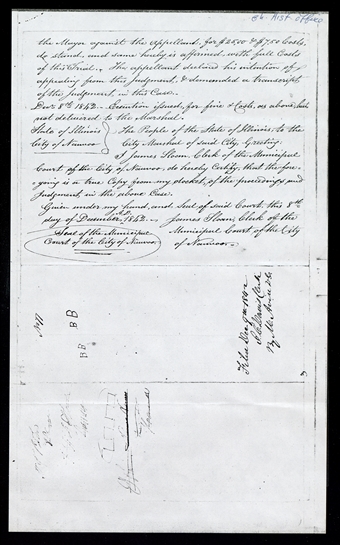 the Mayor against the Appellant, for $25,00 & $7,50 Costs,
do stand, and same hereby is affirmed, with full Costs
of this Trial. The appellant declared his intention of
appealing from this Judgment, & demanded a transcript
of the Judgment, in this Case.
Decr 8th 1842. Execution issued, for fine & Costs, as above, but
not delivered to the Marshal.
State of Illinois
City of Nauvoo
The People of the State of Illinois, to the
City Marshal of said City, Greeting.
I James Sloan, Clerk of the Municipal
Court of the City of Nauvoo, do hereby Certify, that the fore-
going is a true Copy from my docket, of the proceedings and
Judgment, in the above Case.
Given under my hand, and Seal of said Court, this 8th
day of December, 1842. James Sloan, Clerk of the
Municipal Court of the City
of Nauvoo.
Seal of the Municipal
Court of the City of Nauvoo
BB
BB
Filed Decr 9th 1842